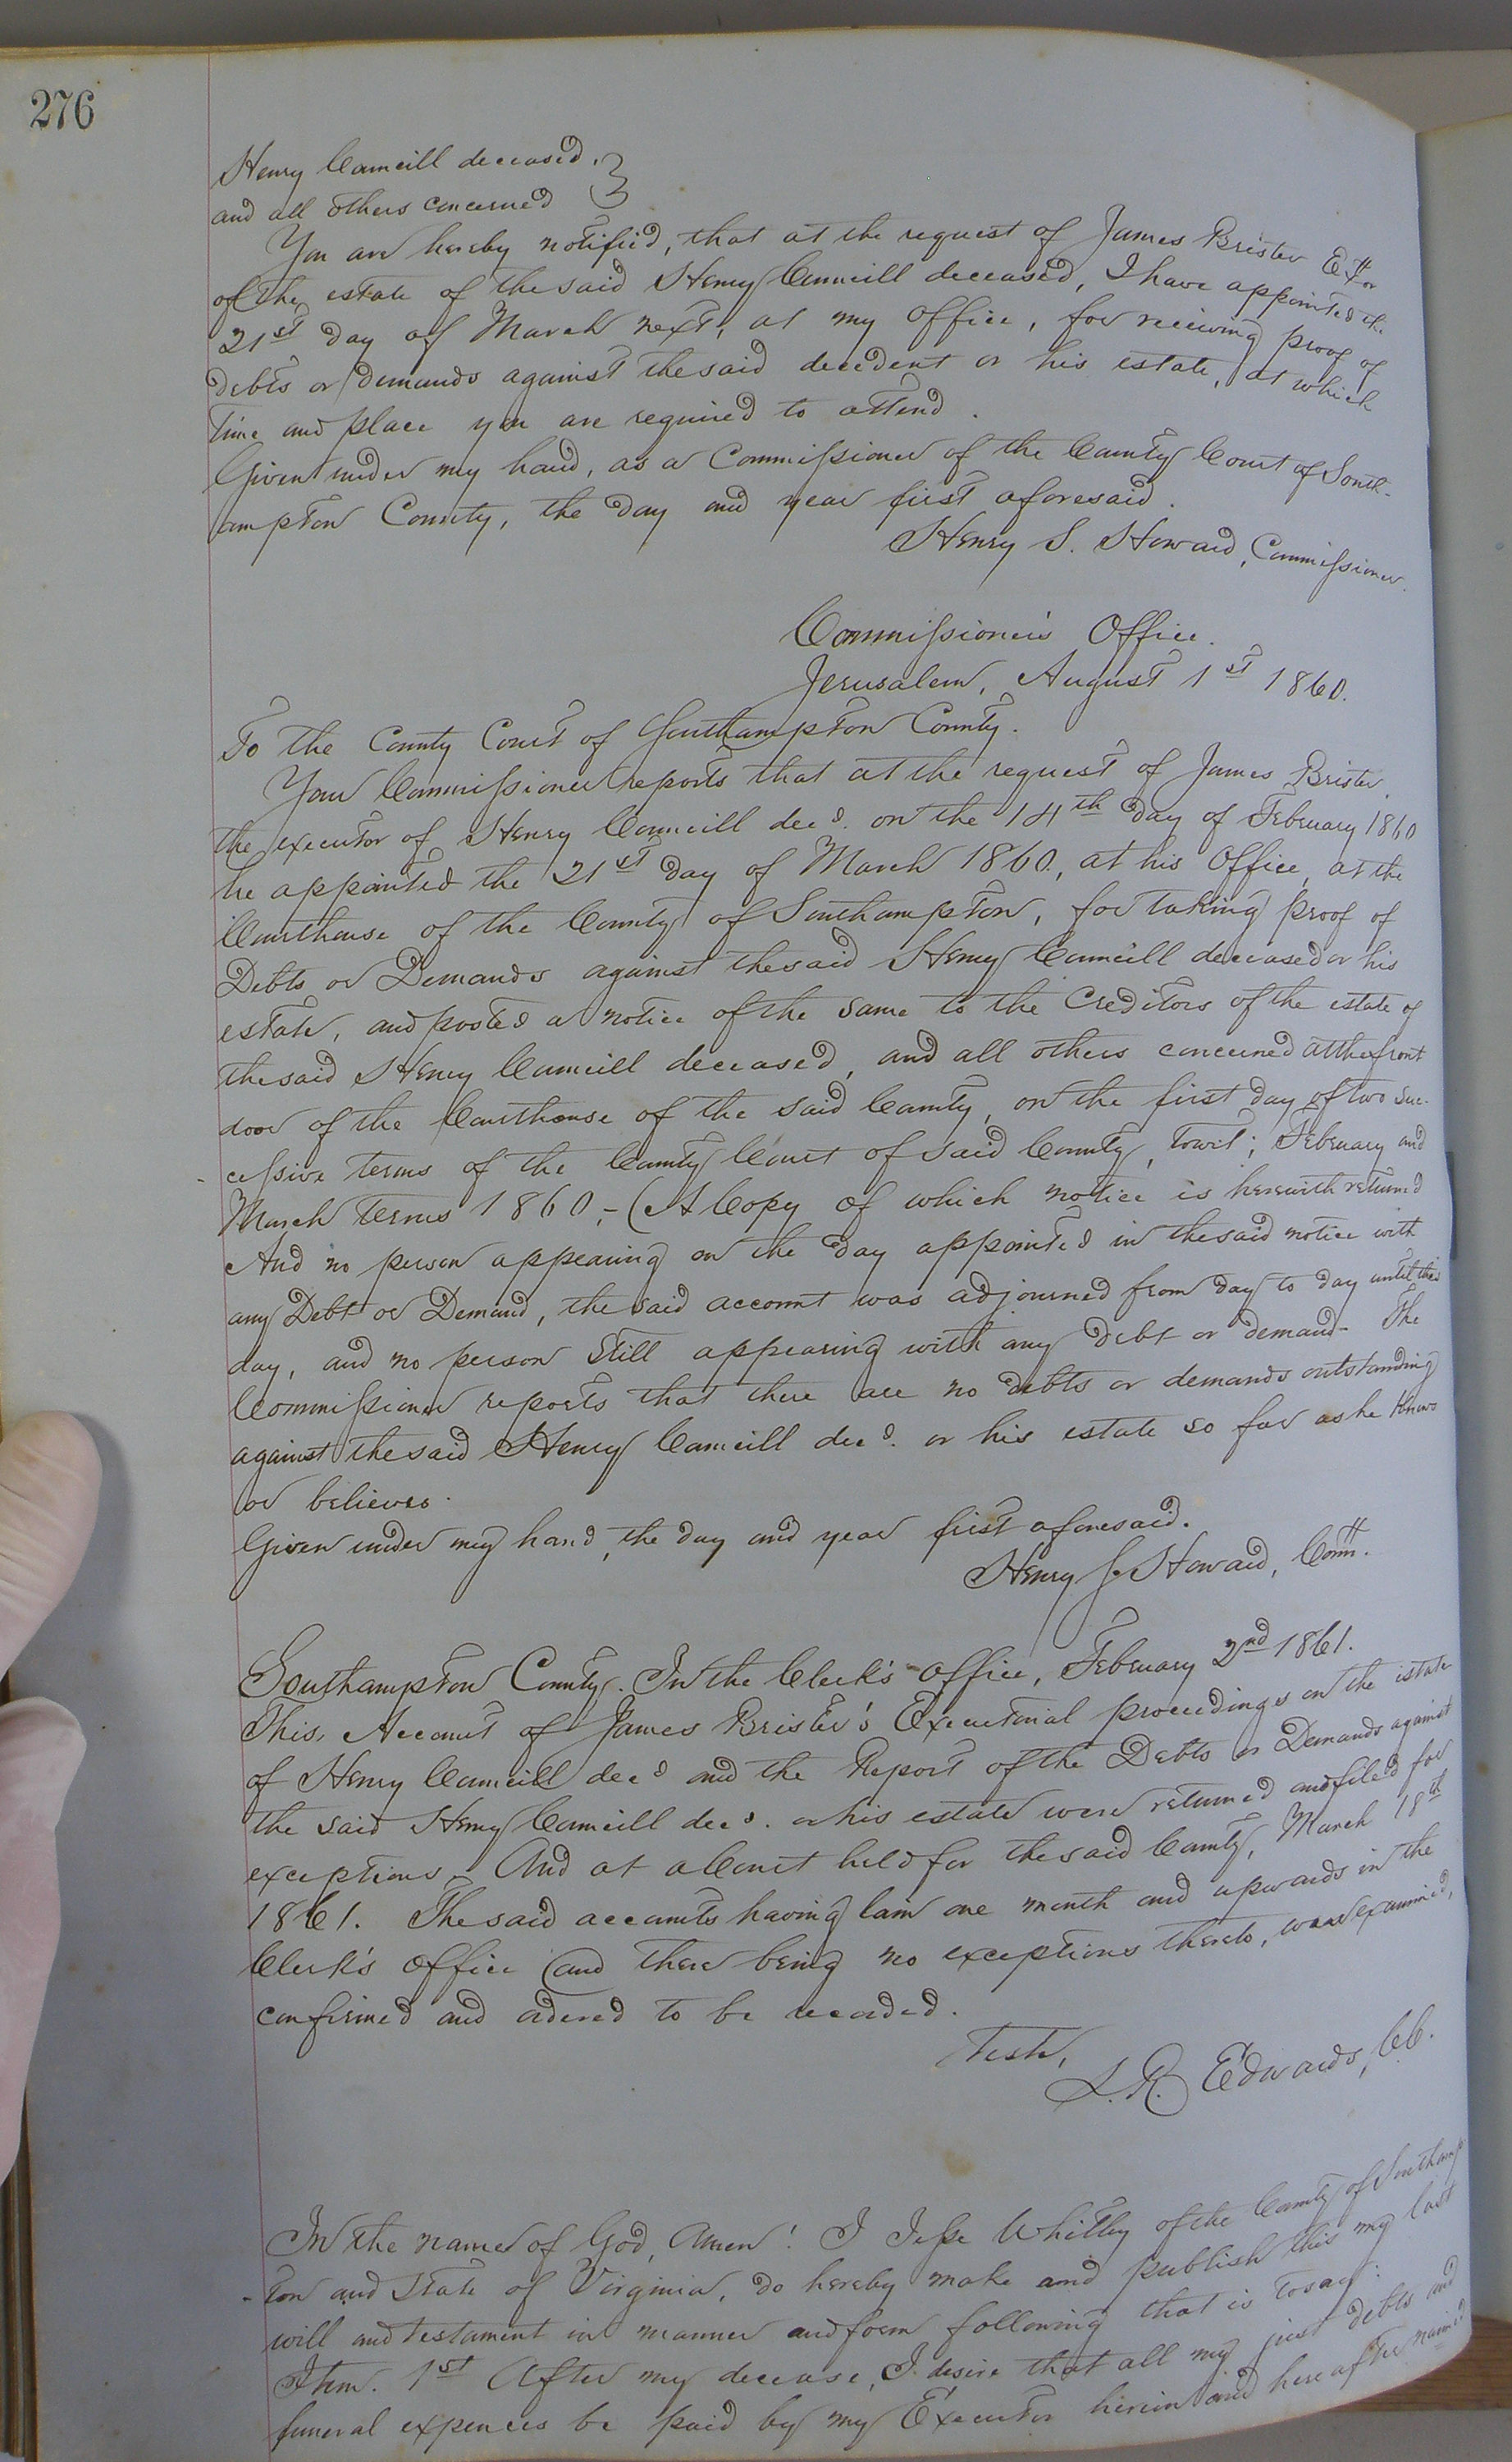 276
Henry Councill deceased,
and all others concerned
You are hereby notified, that at the request of James Brister Exor
of the estate of the said Henry Councill deceased, I have appointed the
21st day of March next, at my office, for receiving proof of
debts or demands against the said decedent or his estate, at which
time and place you are required to attend.
Given under my hand, as a Commissioner of the County Court of South-
ampton County, the day and year first aforesaid.
Henry S. Howard, Commissioner.
Commissioner's Office.
Jerusalem, August 1st 1860.
To the County Court of Southampton County.
Your Commissioner reports that at the request of James Brister,
the executor of Henry Councill decd. on the 14th day of February 1860
he appointed the 21st day of March 1860., at his Office, at the
Courthouse of the County of Southampton, for taking proof of
Debts or Demands against the said Henry Councill deceased or his
estate, and posted a notice of the same to the Creditors of the estate of
the said Henry Councill deceased, and all others concerned at the front
door of the Courthouse of the said County, on the first day of two suc-
-cessive terms of the County Court of said County, towit; February and
March terms 1860,- (A Copy of which notice is herewith returned
And no person appearing on the day appointed in the said notice with
any Debt or Demand, the said account was adjourned from day to day until this
day, and no person still appearing with any debt or demand- The
Commissioner reports that there are no debts or demands outstanding
against the said Henry Councill decd. or his estate so far as he knows
or believes.
Given under my hand, the day and year first aforesaid.
Henry S. Howard, Comr.
Southampton County. In the Clerk's Office, February 2nd 1861.
This, Account of James Brister's Executorial proceedings on the estate
of Henry Councill decd and the Report of the Debts or Demands against
the said Henry Councill decd. or his estate were returned and filed for
exceptions,- And at a Court held for the said County, March 18th
1861. The said accounts having lain one month and upwards in the
Clerk's office and there being no exceptions thereto, was examined,
confirmed and ordered to be recorded.
Teste,
L. R. Edwards, CC.
In the name of God, Amen! I Jesse Whitley of the County of Southamp-
-ton and State of Virginia, do hereby make and publish this my last
will and testament in manner and form following that is to say:
Item. 1st After my decease, I desire that all my just debts and
funeral expences be paid by my Executor herein and hereafter named